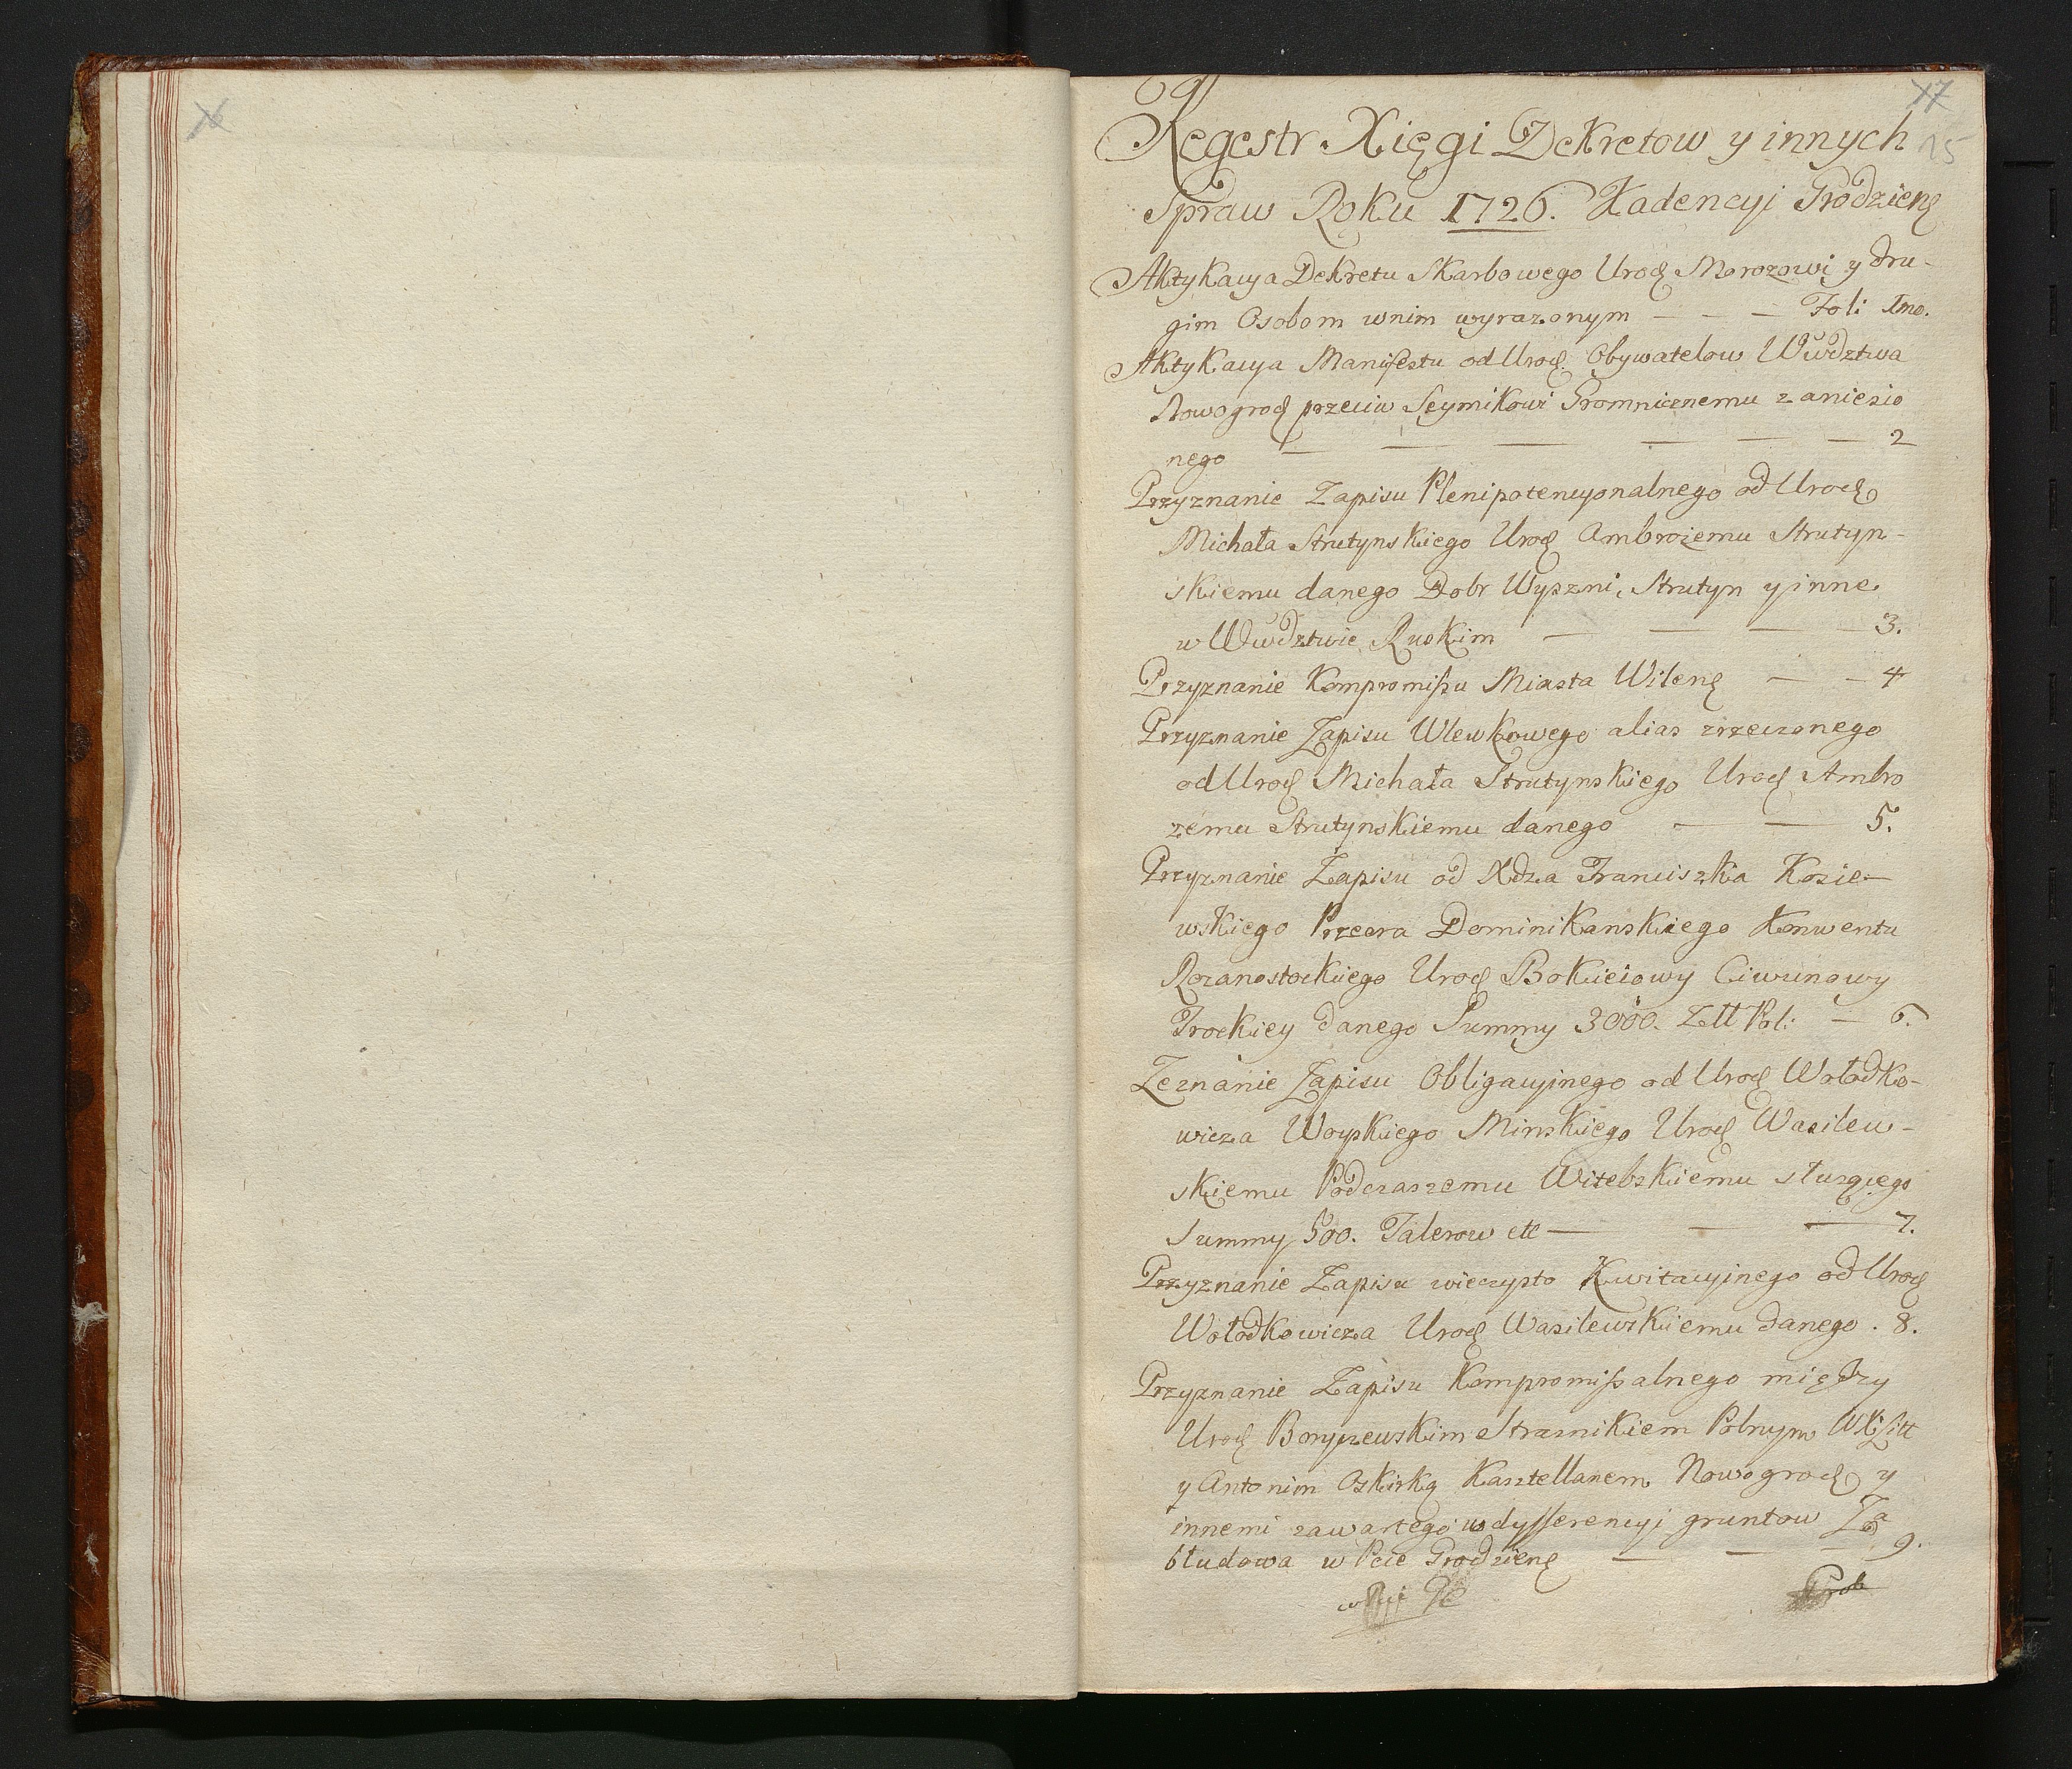 17
15
Regestr Xięgi Dekretow y innych
Spraw Roku 1726. Kadencyi Grodzień
Aktykacya Dekretu Skarbowego Urod Morozowi y dru-
gim Osobom wnim wyrazonym — — — Foli 1mo.
Aktykacya Manifestu od Urod. Obywatelow Wwdztwa
Nowogrod przeciw Seymikowi Gromnicznemu zaniesio
nego — — — — — — 2
Przyznanie Zapisu Plenipotencyonalnego od Urod
Michała Strutynskiego Urod Ambrożemu Strutyn-
skiemu danego Dobr Wyszni, Strutyn y inne
w Wwdztwie Ruskim — — — — 3.
Przyznanie Kompromissu Miasta Wilen — — 4
Przyznanie Zapisu Wlewkowego alias zrzeczonego
od Urod Michała Strutynskiego Urod Ambro
zemu Strutynskiemu danego — — 5.
Przyznanie Zapisu od Xdza Franciszka Kosie-
wskiego Przeora Dominikanskiego Konwentu
Rozanostockiego Urod Bokieiowy Ciwunowy
Trockiey danego Summy 3000. Złł Pol: — 6.
Zeznanie Zapisu Obligacyjnego od Urod Wołodko-
wicza Woyskiego Minskiego Urod Wasilew-
skiemu Podczaszemu Witebskiemu służącego
Summy 500. Talerow etc — — — 7.
Przyznanie Zapisu wieczysto Kwitacyjnego od Urod
Wołodkowicza Urod Wasilewskiemu danego . 8.
Przyznanie Zapisu Kompromissalnego między
Urod Boryszewskim Strasnikiem Polnym WXLitt
y Antonim Oskirką Kasztellanem Nowogrod y
innemi zawartego w dyfferencyi gruntow Za
błudowa w Pcie Grodzien — — — 9.